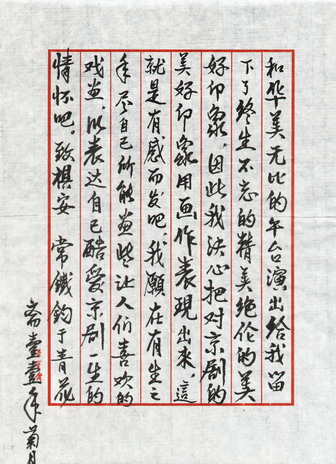 和华美无比的午台演出给我留
下了终生不忘的精美绝伦的美
好印象，因此我决心把对京剧的
美好印象用画作表现出来，这
就是有感而发吧。我愿在有生之
年尽自己所能画些让人们喜欢的
戏画，以表达自己酷爱京剧一生的
情怀吧。致棋安 常铁钧于青花
斋壹壹年菊月